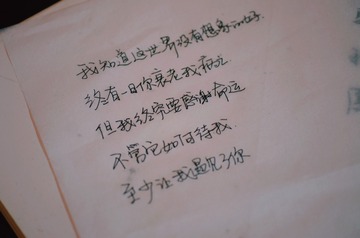 我知道这世界没有想象的好
终有一日你衰老我病死
但我终究要感谢命运
不管它如何待我
至少让我遇见了你